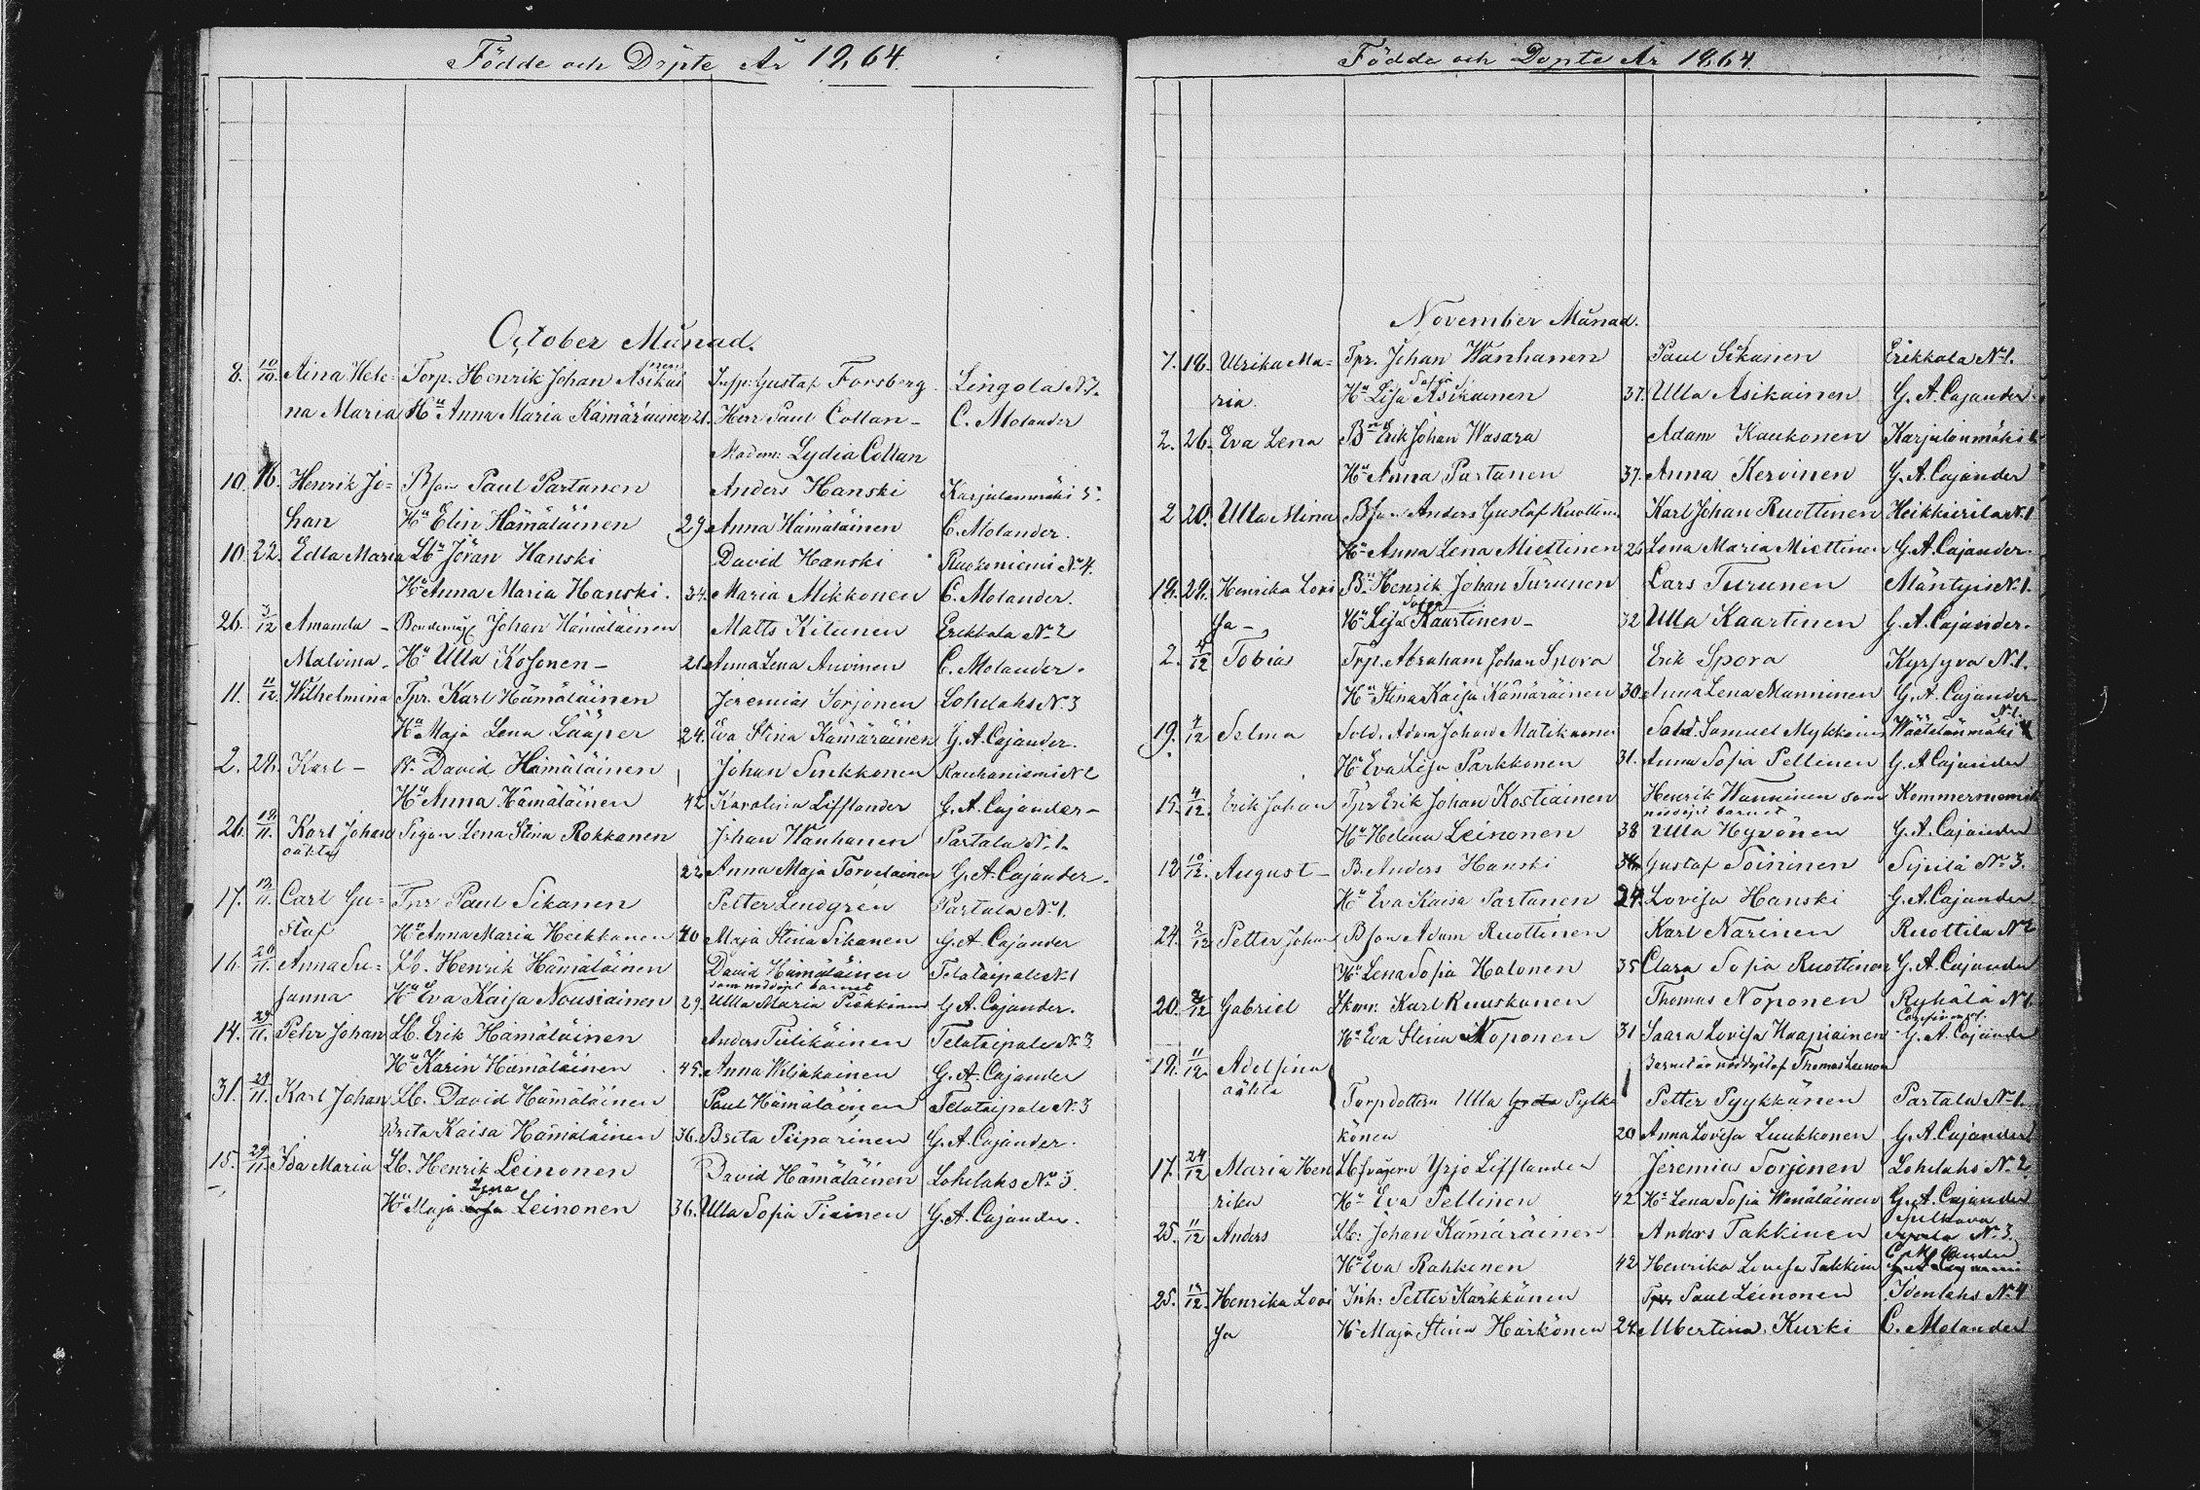 Födde och Döpte År 1864
October Månad.
8. 10/10. Aina Hele- Torp. Henrik Johan Asikainen Insp: Gustaf Forsberg Lingola N:2.
na Maria Hu Anna Maria Kämäräinen 21. Herr Paul Collan - C. Molander
Madem: Lydia Collan
10. 16. Henrik Jo- Bson Paul Partanen Anders Hanski Karjalanmäki 5.
han Hu Elin Hämäläinen 29 Anna Hämäläinen C. Molander.
10. 22. Edla Maria Lbr Jöran Hanski David Hanski Raukoniemi No 4.
Hu Anna Maria Hanski. 34. Maria Mikkonen C. Molander.
26. 3/12 Amanda - Johan Hämäläinen Matts Kitunen Erikkala No 2
Malvina - Hu Ulla Kosonen - 21. Anna Lena Auvinen C. Molander.
11. 11/12. Wilhelmina Tpr. Karl Hämäläinen Jeremias Torjonen Lohilahs N. 3
Hu Maja Lena Lääper 24. Eva Stina Kämäräinen G. A. Cajander.
2. 28. Karl - B. David Hämäläinen Johan Sinkkonen Rauhaniemi N 2
Hu Anna Hämäläinen 42 Karolina Lifflander G. A. Cajander -
26. 18/11. Karl Johan Pigan Lena Stina Rokkanen Johan Wanhanen Partala N. 1.
oäkta
22. Anna Maja Torvelainen G. A. Cajander.
17. 13/11. Carl Gu= Tpr Paul Sikanen Petter Lindgren Partala No 1.
staf Hu Anna Maria Heikkanen 40 Maja Stina Sikanen G. A. Cajander
16. 20/11. Anna Su= Lb. Henrik Hämäläinen David Hämäläinen Telataipale N. 1
som nöddöpt barnet
sanna Hu Eva Kaisa Nousiainen 29. Ulla Maria Piikkinen G. A. Cajander.
14. 29/11. Pehr Johan Lb. Erik Hämäläinen Anders Tiilikäinen Telataipale No. 3.
Hu Karin Hämäläinen 45. Anna Wiljakainen G. A. Cajander
31. 29/11. Karl Johan Lb. David Hämäläinen Paul Hämäläinen Telataipale No. 3
Brita Kaisa Hämäläinen 36. Brita Piiparinen G. A. Cajander.
15. 29/11. Ida Maria Lb. Henrik Leinonen David Hämäläinen Lohilahs No 3.
Lena
Hu Maja Leinonen 36. Ulla Sofia Tiainen G. A. Cajander.
Födde och Döpte År 1864.
November Månad.
7. 18. Ulrika Ma= Tpr. Johan Wanhanen Paul Sikanen Erikkala No 1.
Sofia
ria. Hu Lisa Asikainen 37. Ulla Asikainen G. A. Cajander.
2. 26. Eva Lena Bnd Erik Johan Wasara Adam Kaukonen Karjalanmäki
Hu Anna Partanen 37. Anna Kervinen G. A. Cajander
2 20. Ulla Mina Bson Anders Gustaf Ruottinen Karl Johan Ruottinen Heikkurila N. 1
Hu Anna Lena Miettinen 25 Lena Maria Miettinen G. A. Cajander.
19. 29. Henrika Lovi B. Henrik Johan Turunen Lars Turunen Mäntyis N. 1.
Sofia
sa - Hu Lisa Kaartinen - 32 Ulla Kaartinen G. A. Cajander.
2. 4/12 Tobias Trp. Abraham Johan Spora Erik Spora Kyrsyva N. 1.
Hu Stina Kaisa Kämäräinen 30 Anna Lena Manninen G. A. Cajander
19. 4/12 Selma Sold. Adam Johan Matikainen Sold. Samuel Mykkänen Wäätälänmäki N. 1.
Hu Eva Lisa Parkkonen 31. Anna Sofia Pellinen G. A. Cajander
15. 4/12. Erik Johan Tpr Erik Johan Kostiainen Henrik Wanninen som Kommerniemi
nöddöpt barnet
Hu Helena Leinonen 38 Ulla Hyvönen G. A. Cajander
12 18/12. August - B. Anders Hanski Gustaf Soininen Sipilä No 3.
Hu Eva Kaisa Partanen 24. Lovisa Hanski G. A. Cajander
24. 2/12 Petter Johan Bson Adam Ruottinen Karl Närinen Ruottila No 2
Hu Lena Sofia Halonen 35 Clara Sofia Ruottinen G. A. Cajander
20. 2/12 Gabriel Skom. Karl Ruuskanen Thomas Noponen Ryhälä No 1.
Hu Eva Stina Noponen 31 Saara Lovisa Haapiainen G. A. Cajander
19. 11/12. Adelfina Barnet är nöddöpt af Thomas Leinonen
oäkta
Torpdottern Ulla Greta Pylk Petter Pyykkänen Partala No 1.
könen 20 Anna Lovisa Luukkonen G. A. Cajander
17. 24/12 Maria Hen Yrjö Lifflander Jeremia Torjonen Lohilahs No 2.
rika Hu Eva Pellinen 42 Hu Lena Sofia Hämäläinen G. A. Cajander
Sulkava
25. 11/12 Anders Lb: Johan Kämäräinen Anders Takkinen No 3.
Hu Eva Rahkonen 42 Henrika Lovisa Takkinen
25. 12/12. Henrika Lovi Inh: Petter Kärkkänen Tpr Paul Leinonen Idenlahs No 4
sa Hu Maja Stina Härkönen 24. Albertina Kurki C. Molander